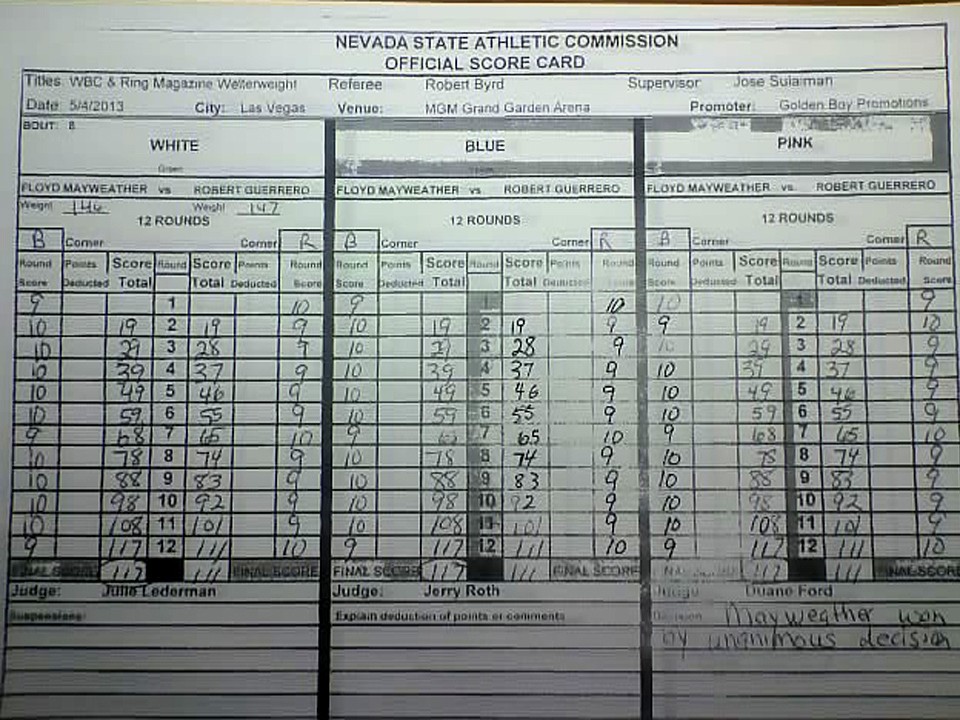 NEVADA STATE ATHLETIC COMMISSION
OFFICIAL SCORE CARD
Titles WBC & Ring Magazine Welterweight Referee Robert Byrd Supervisor Jose Sulaiman
Date: 5/4/2013 City: Las Vegas Venue: MGM Grand Garden Arena Promoter: Golden Boy Promotions
BOUT: 8
WHITE BLUE PINK
FLOYD MAYWEATHER vs ROBERT GUERRERO FLOYD MAYWEATHER vs. ROBERT GUERRERO FLOYD MAYWEATHER vs. ROBERT GUERRERO
Weight 146 Weight 147
12 ROUNDS 12 ROUNDS 12 ROUNDS
B Corner Corner R B Corner Corner R B Corner Corner R
Round Points Score Round Score Points Round Round Points Score Round Score Points Round Round Points Score Round Score Points Round
Score Deducted Total Total Deducted Score Score Deducted Total Total Deducted Score Deducted Total Total Deducted Score
9 1 10 9 1 10 10 1 9
10 19 2 19 9 10 19 2 19 9 9 19 2 19 10
10 29 3 28 9 10 29 3 28 9 10 29 3 28 9
10 39 4 37 9 10 39 4 37 9 10 39 4 37 9
10 49 5 46 9 10 49 5 46 9 10 49 5 46 9
10 59 6 55 9 10 59 6 55 9 10 59 6 55 9
9 68 7 65 10 9 68 7 65 10 9 68 7 65 10
10 78 8 74 9 10 78 8 74 9 10 78 8 74 9
10 88 9 83 9 10 88 9 83 9 10 88 9 83 9
10 98 10 92 9 10 98 10 92 9 10 98 10 92 9
10 108 11 101 9 10 108 11 101 9 10 108 11 101 9
9 117 12 111 10 9 117 12 111 10 9 117 12 111 10
FINAL SCORE 117 111 FINAL SCORE FINAL SCORE 117 111 FINAL SCORE 117 111 FINAL SCORE
Judge: Julie Lederman Judge: Jerry Roth Judge Duane Ford
Suspensions: Explain deduction of points or comments Decision Mayweather won
by unanimous decision